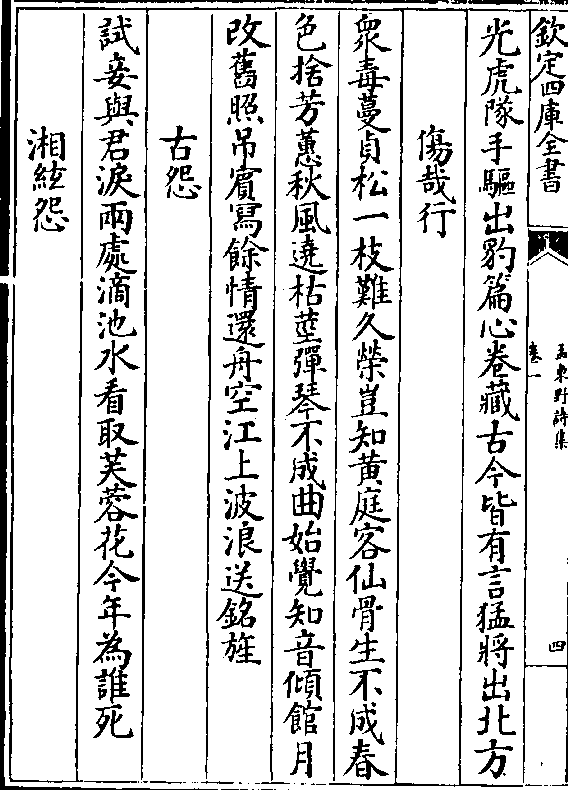 欽定四庫全書
孟東野詩集
卷一
四
光虎隊手驅出豹篇心卷藏古今皆有言猛將出北方
傷哉行
衆毒蔓貞松一枝難久榮豈知黄庭客仙骨生不成春
色捨芳蕙秋風遶枯莖彈琴不成曲始覺知音傾館月
改舊照吊賓冩餘情還舟空江上波浪送銘旌
古怨
試妾與君淚兩處滴池水看取芙蓉花今年為誰死
湘絃怨